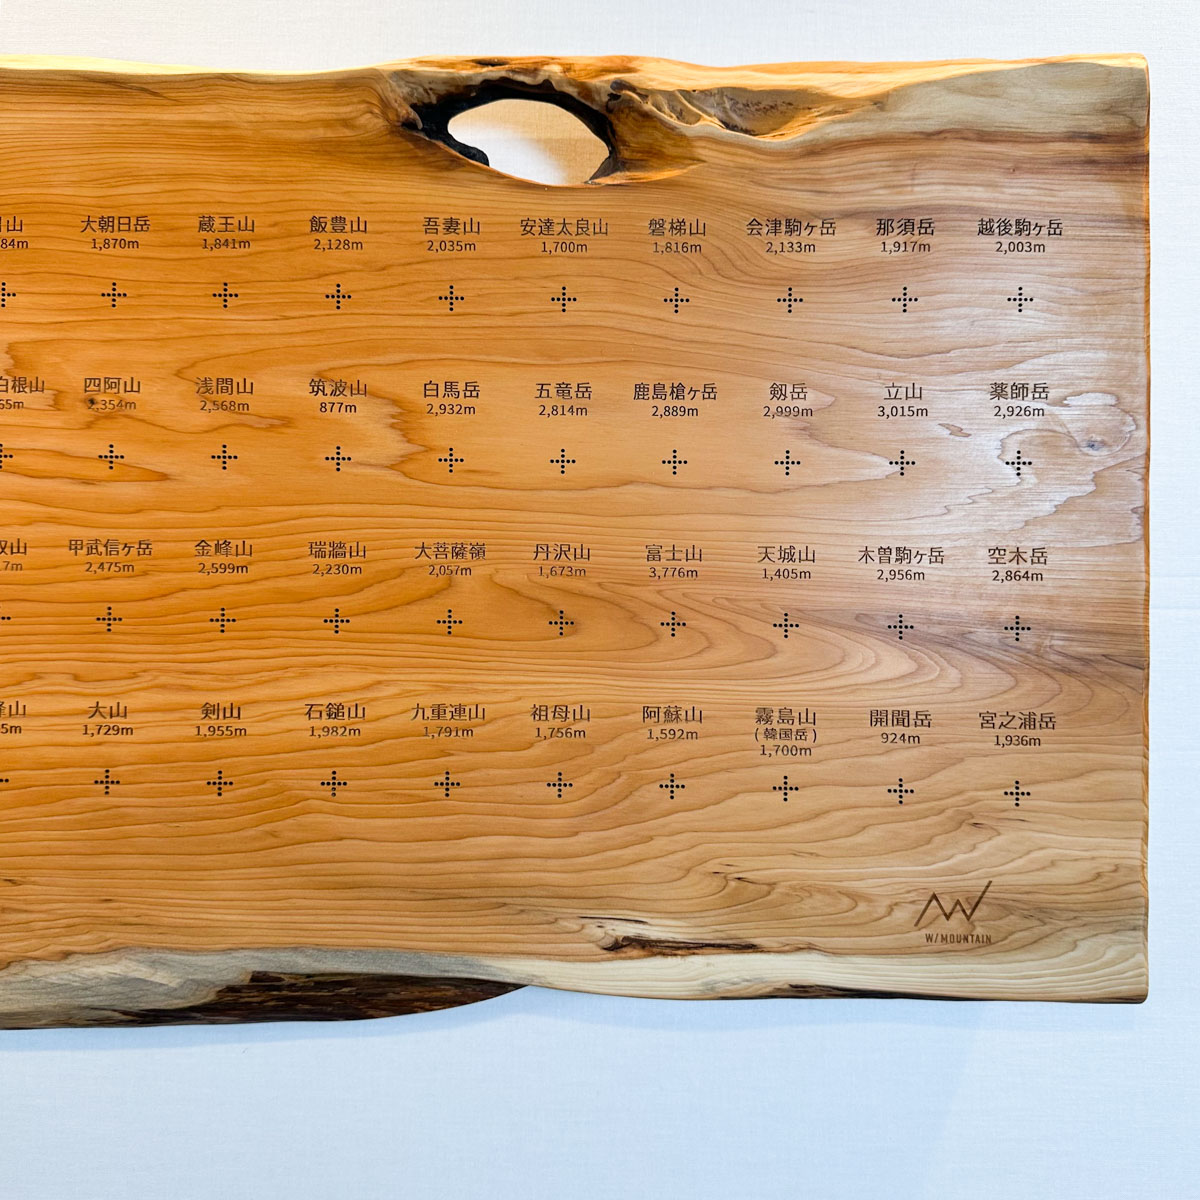 山 大朝日岳 蔵王山 飯豊山 吾妻山 安達太良山 磐梯山 会津駒ヶ岳 那須岳 越後駒ヶ岳
84m 1,870m 1,841m 2,128m 2,035m 1,700m 1,816m 2,133m 1,917m 2,003m
白根山 四阿山 浅間山 筑波山 白馬岳 五竜岳 鹿島槍ヶ岳 剱岳 立山 薬師岳
65m 2,354m 2,568m 877m 2,932m 2,814m 2,889m 2,999m 3,015m 2,926m
取山 甲武信ヶ岳 金峰山 瑞牆山 大菩薩嶺 丹沢山 富士山 天城山 木曽駒ヶ岳 空木岳
17m 2,475m 2,599m 2,230m 2,057m 1,673m 3,776m 1,405m 2,956m 2,864m
峰山 大山 剣山 石鎚山 九重連山 祖母山 阿蘇山 霧島山 開聞岳 宮之浦岳
5m 1,729m 1,955m 1,982m 1,791m 1,756m 1,592m (韓国岳) 924m 1,936m
1,700m
W/MOUNTAIN